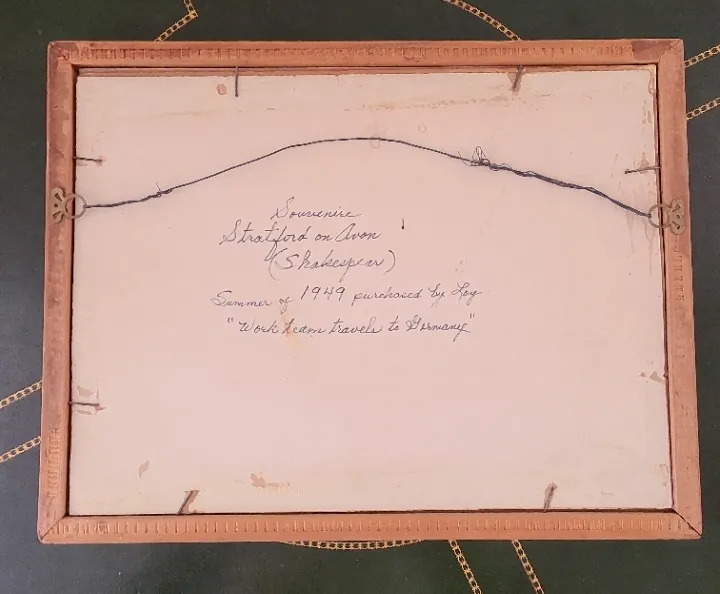 Souvenire
Stratford on Avon
(Shakespear)
Summer of 1949 purchased by Loy
"Work team travels to Germany"